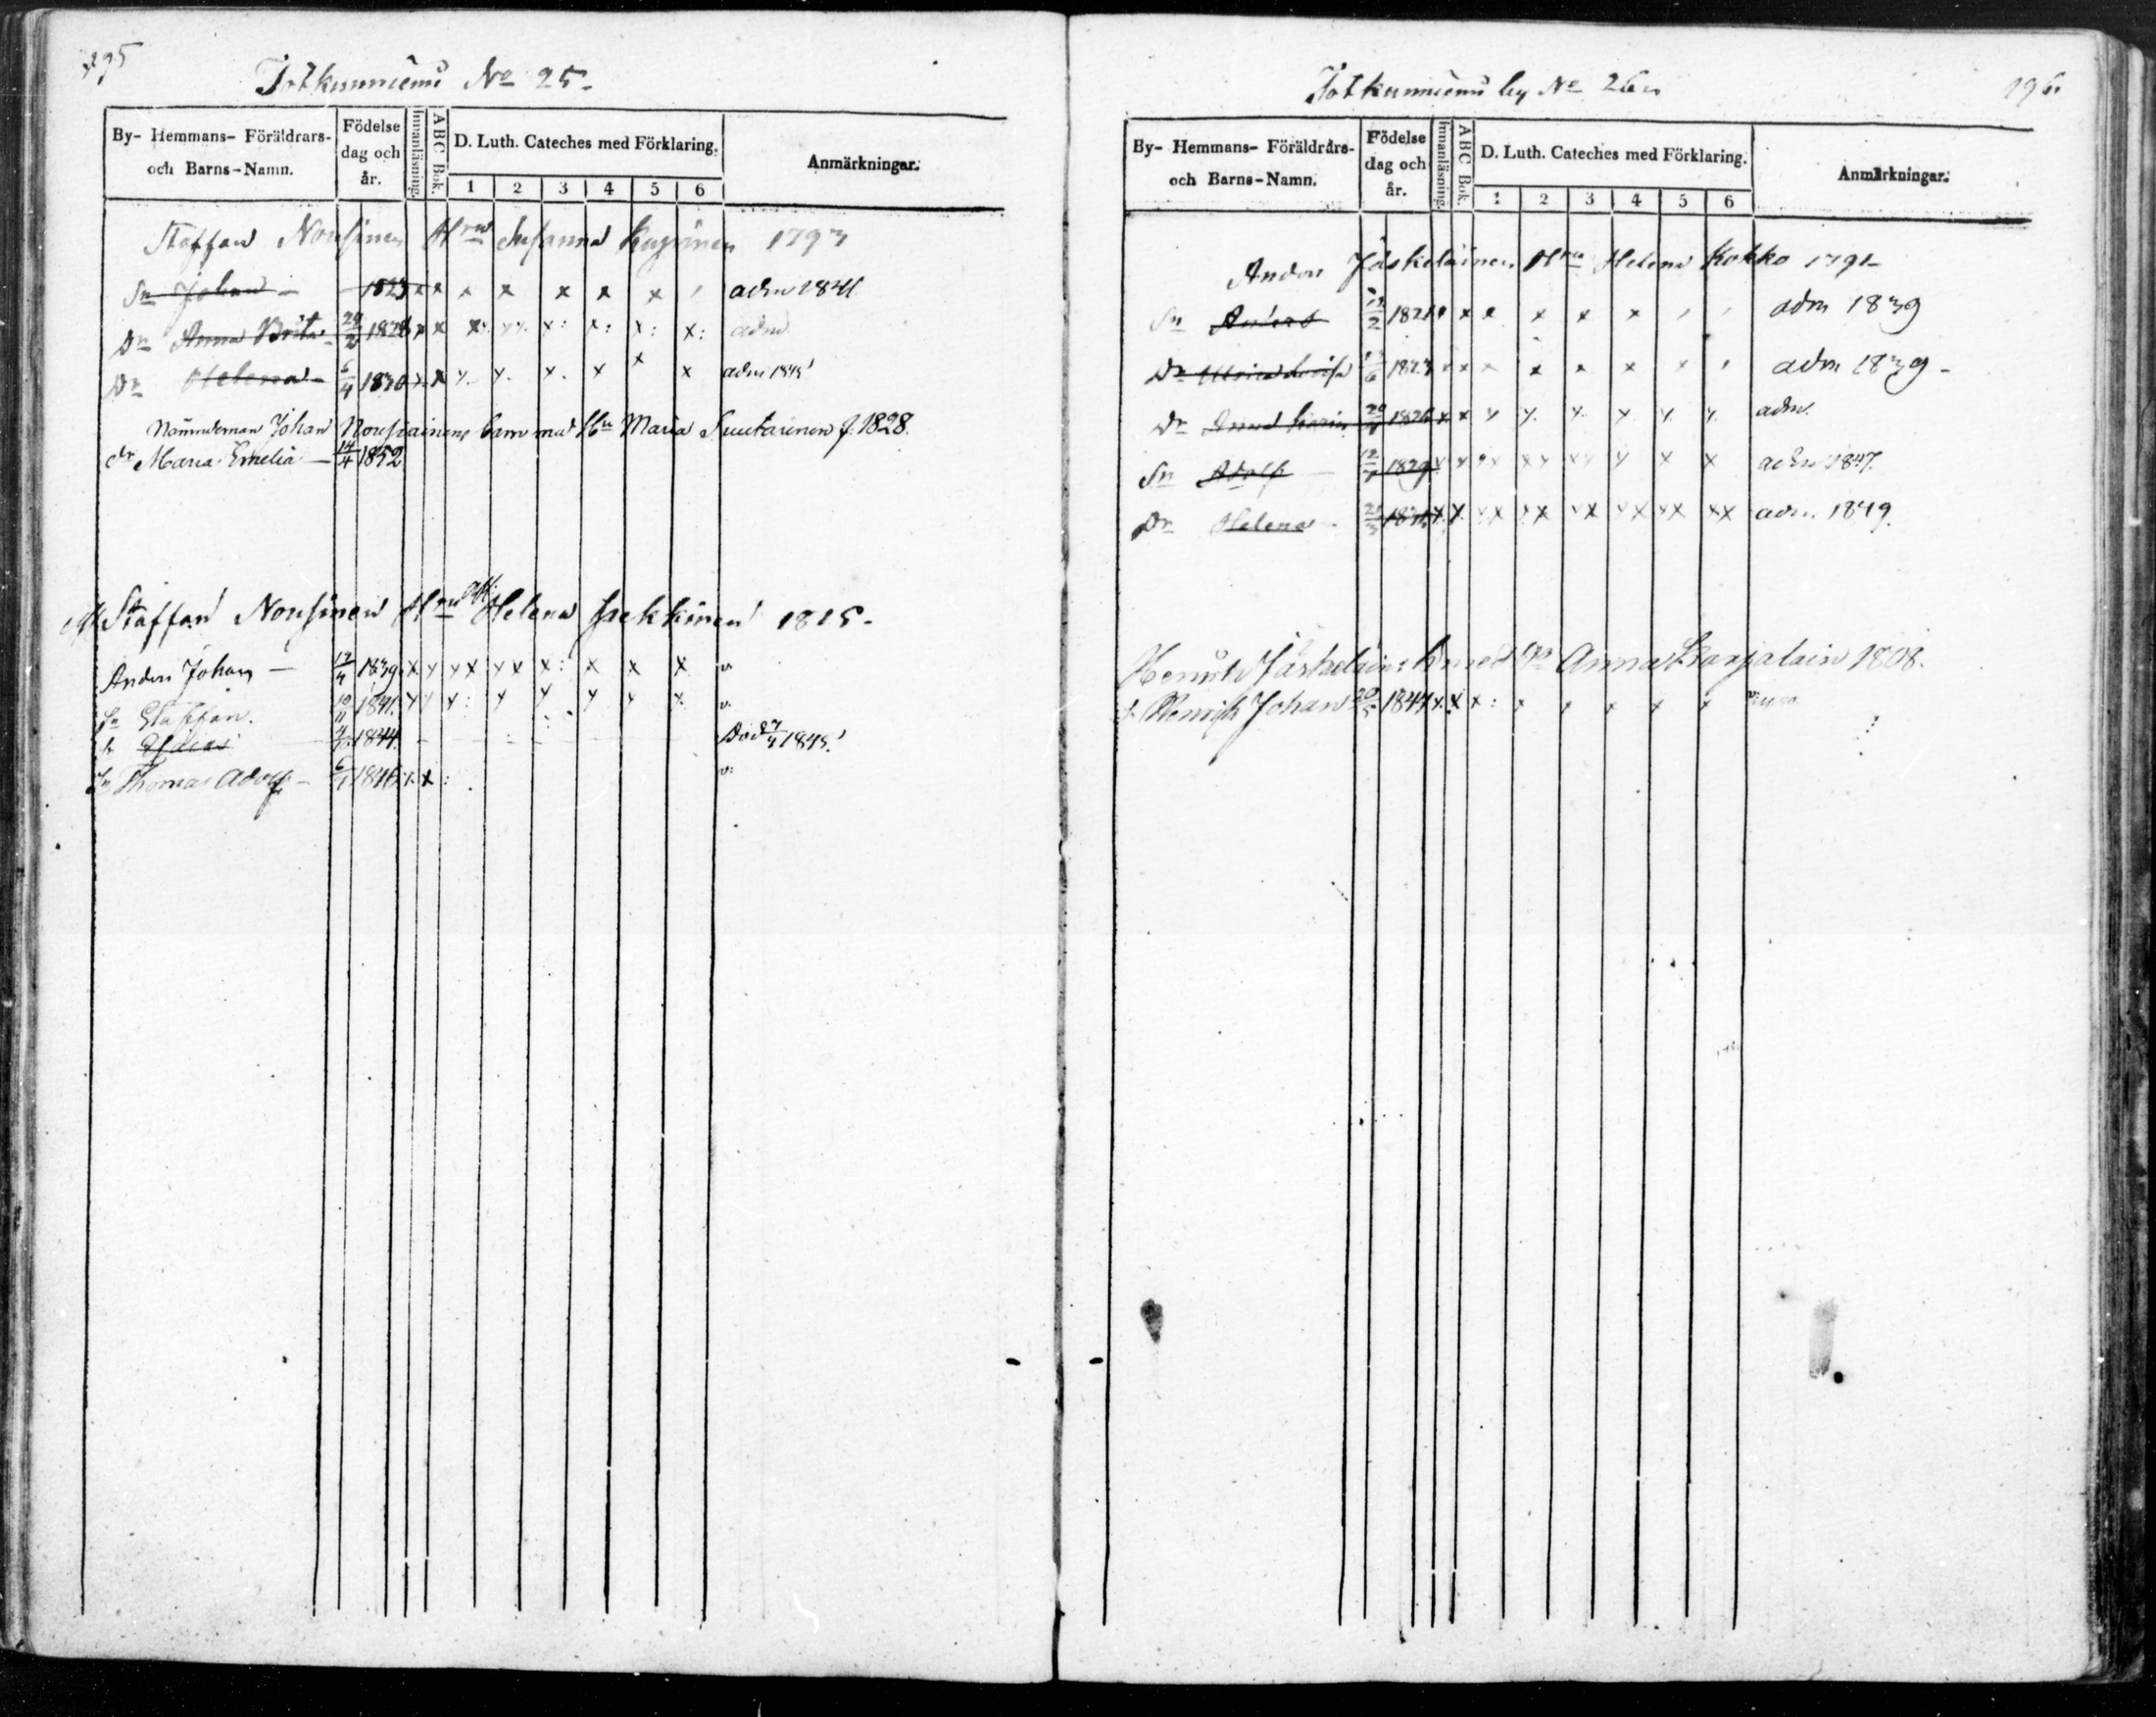 195
Jotkunniemi No 25.
By- Hemmans- Föräldrars- och Barns-Namn.
Födelse dag och år.
Innanläsning.
ABC Bok.
D. Luth. Cateches med Förklaring.
1 2 3 4 5 6
Anmärkningar.
Staffan Nousinen Hru Susanna 1793
Sn Johan 1823 x x x x x x x adm 1841
Dr Anna Brita 29/2 1828 x x x: x: x: x: x: adm
Dr Helena 6/4 1830 x x x. x. x. x x x adm 1845
Nämndeman Johan Nousiainens barn med Hu Maria Suutarinen f. 1828.
dr Maria Emelia 14/4 1852
Staffan Nousinen Hru Helena 1815
Anders Johan 17/4 1839. x x x x x x x: x x x v.
Sn Staffan. 10/11 1841. x x x: x x x x x v.
1844. Död 1845.
Sn Thomas Adolf 6/1 1846 x x: v:
Jotkunniemi by No 26
196
By- Hemmans- Föräldrars- och Barns-Namn.
Födelse dag och år.
Innanläsning.
ABC Bok.
D. Luth. Cateches med Förklaring.
1 2 3 4 5 6
Anmärkningar.
Anders Jäskeläinen Hru Helena Kokko 1791
Sn Anders 1821 x x x x x adm 1839
Dr Ulrica Lovisa 1823 x x x x x x x adm 1839
Dr Anna Karin 1826 x x x x. x. x x. x. adm.
Sn Adolf 12/7 1829 x x x x x x x x x x x adm 1847.
Dr Helena x x x x x x x x x x x x x x adm. 1849.
Henrik Jäskeläin: b med Hu Anna Karjalain 1808.
s. Henrik Johan 20/5 1844 x x x: x x x x x